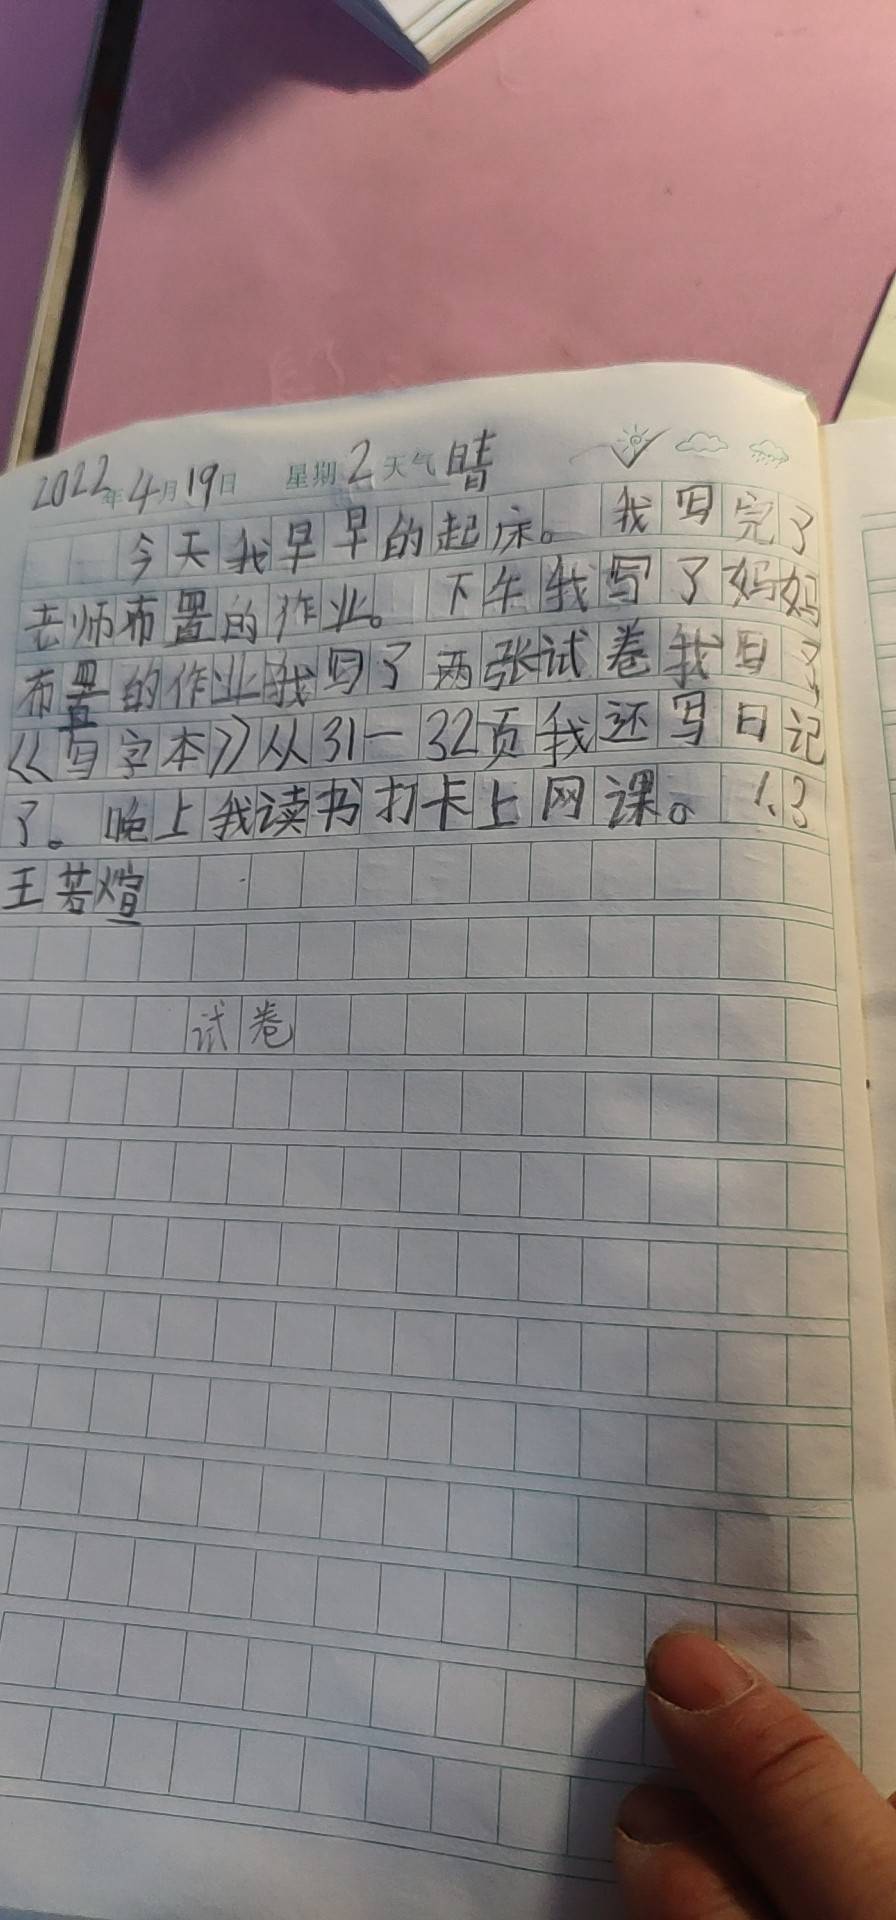 2022年4月19日 星期2天气晴
今天我早早的起床。我写完了
老师布置的作业。下午我写了妈妈
布置的作业我写了两张试卷我写了
《写字本》从31一32页我还写日记
了。晚上我读书打卡上网课。1.3
王若煊
试卷